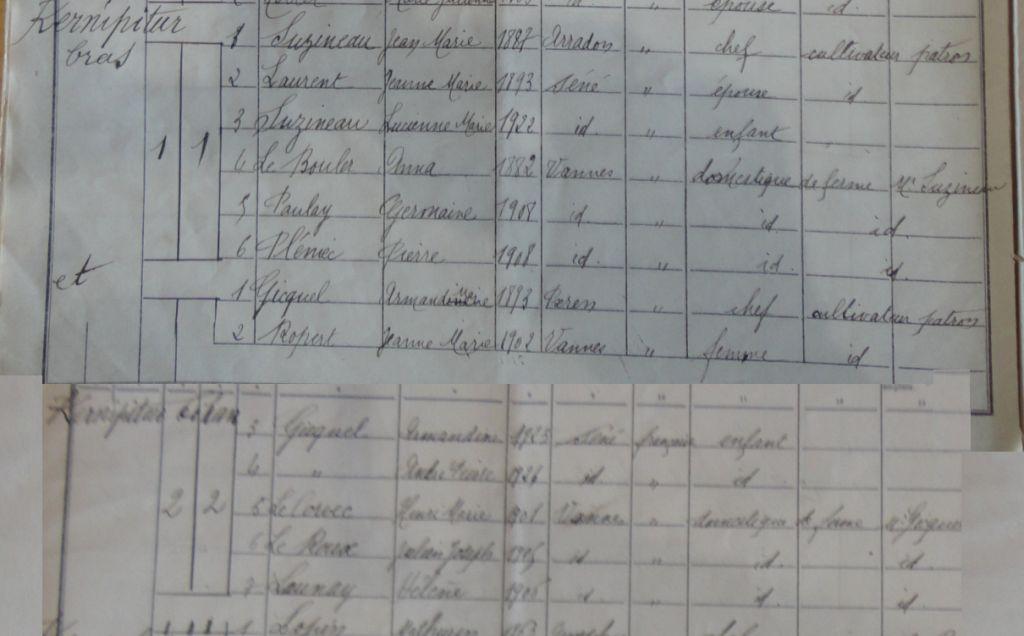 épouse id.
Kernipitur
bras
1 Luzineau Jean Marie 1887 Arradon " chef cultivateur patron
2 Laurent Jeanne Marie 1893 Séné " épouse id
3 Luzineau Lucienne Marie 1922 id. " enfant
1 1
4 Le Bouler Anna 1882 Vannes " domestique de ferme Mr Luzineau
5 Paulay Germaine 1908 id. " id. id.
6 Pléniec Pierre 1908 id. " id. id
et
1 Gicquel 1893 chef cultivateur patron
2 Ropert Jeanne Marie 1902 Vannes " femme id
Kernipitur
3 Gicquel Armandine 1923 Séné française enfant
4 " 1926 id. " id
2 2
5 Henri Marie Vannes " domestique de ferme Mr
6 Le Roux Julien Joseph id " id. id.
7 Launay Hélène id " id. id.
1